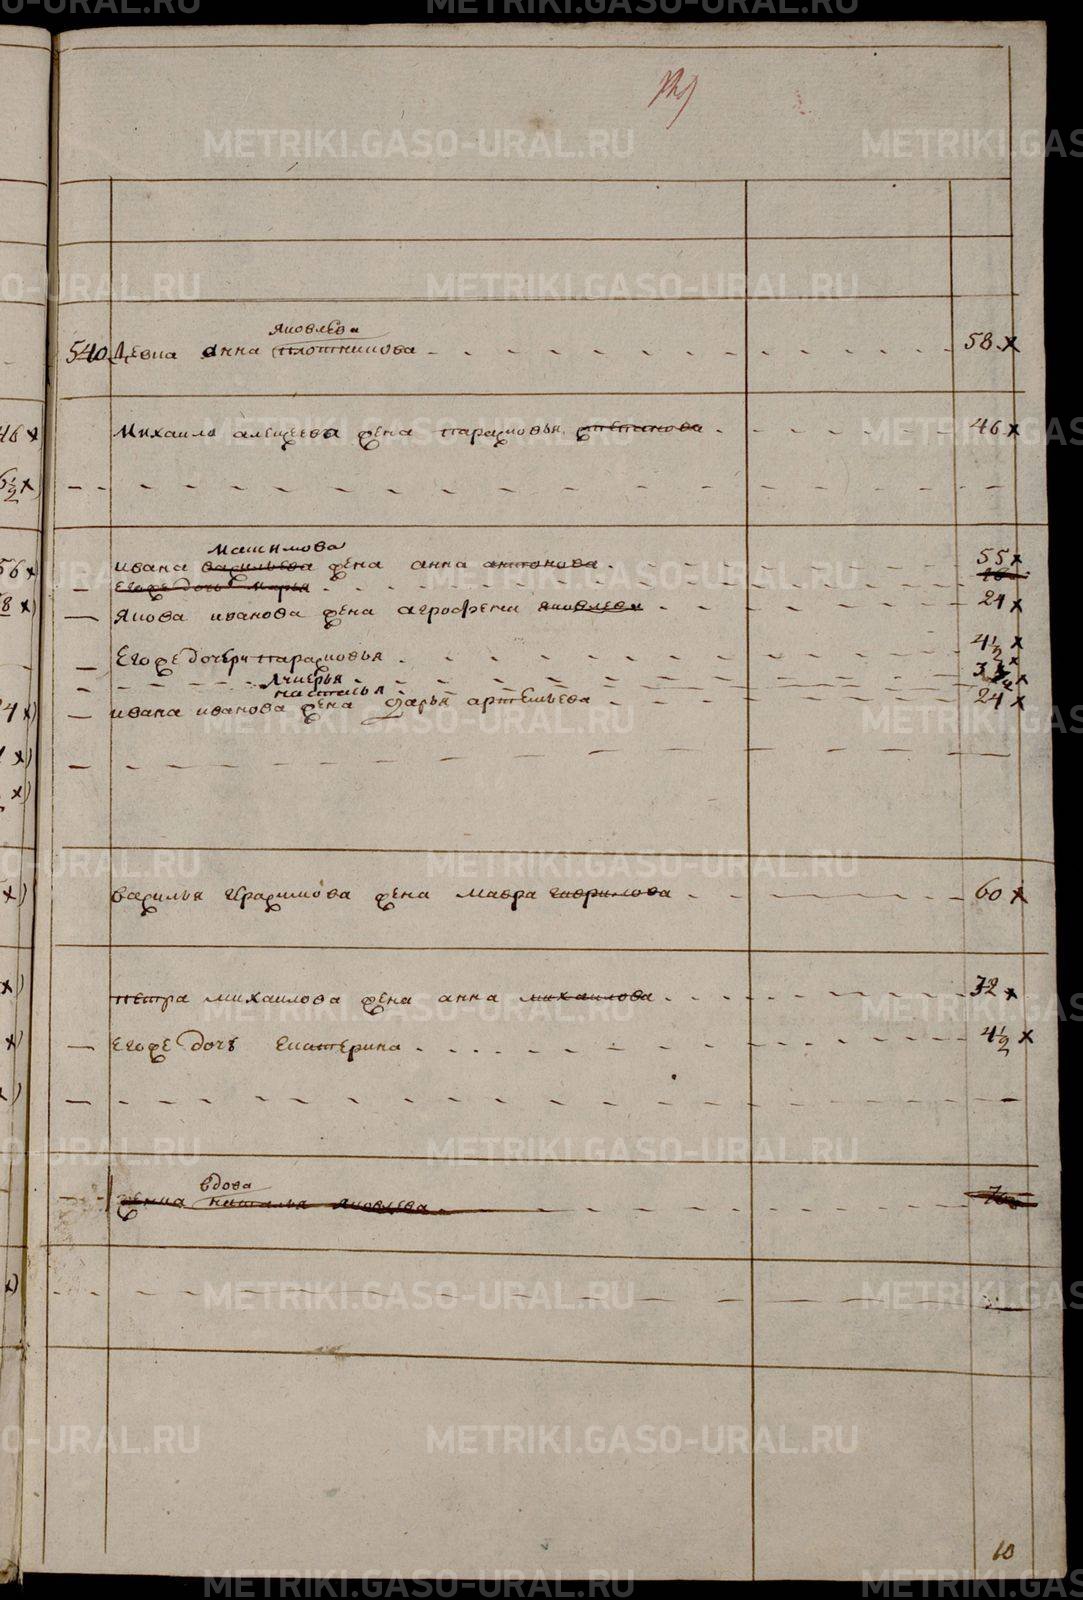 METRIKI.GASO-URAL.RU
яковлева
540 Девка анна плотникова 58 х
михаила алексеева жена парасковья степанова 46 х
максимова
ивана васильева жена анна антонова 55 х
Егоже дочь марья
якова иванова жена агрофена яковлева 24 х
Егоже дочери парасковья 4½ х
лукерья 3 х
насталья
ивана иванова жена дарья артемьева 24 х
василья герасимова жена мавра гаврилова 60 х
петра михаилова жена анна михаилова 32 х
Егоже дочь Екатерина 4½ х
вдова
жена наталья яковлева 70
10